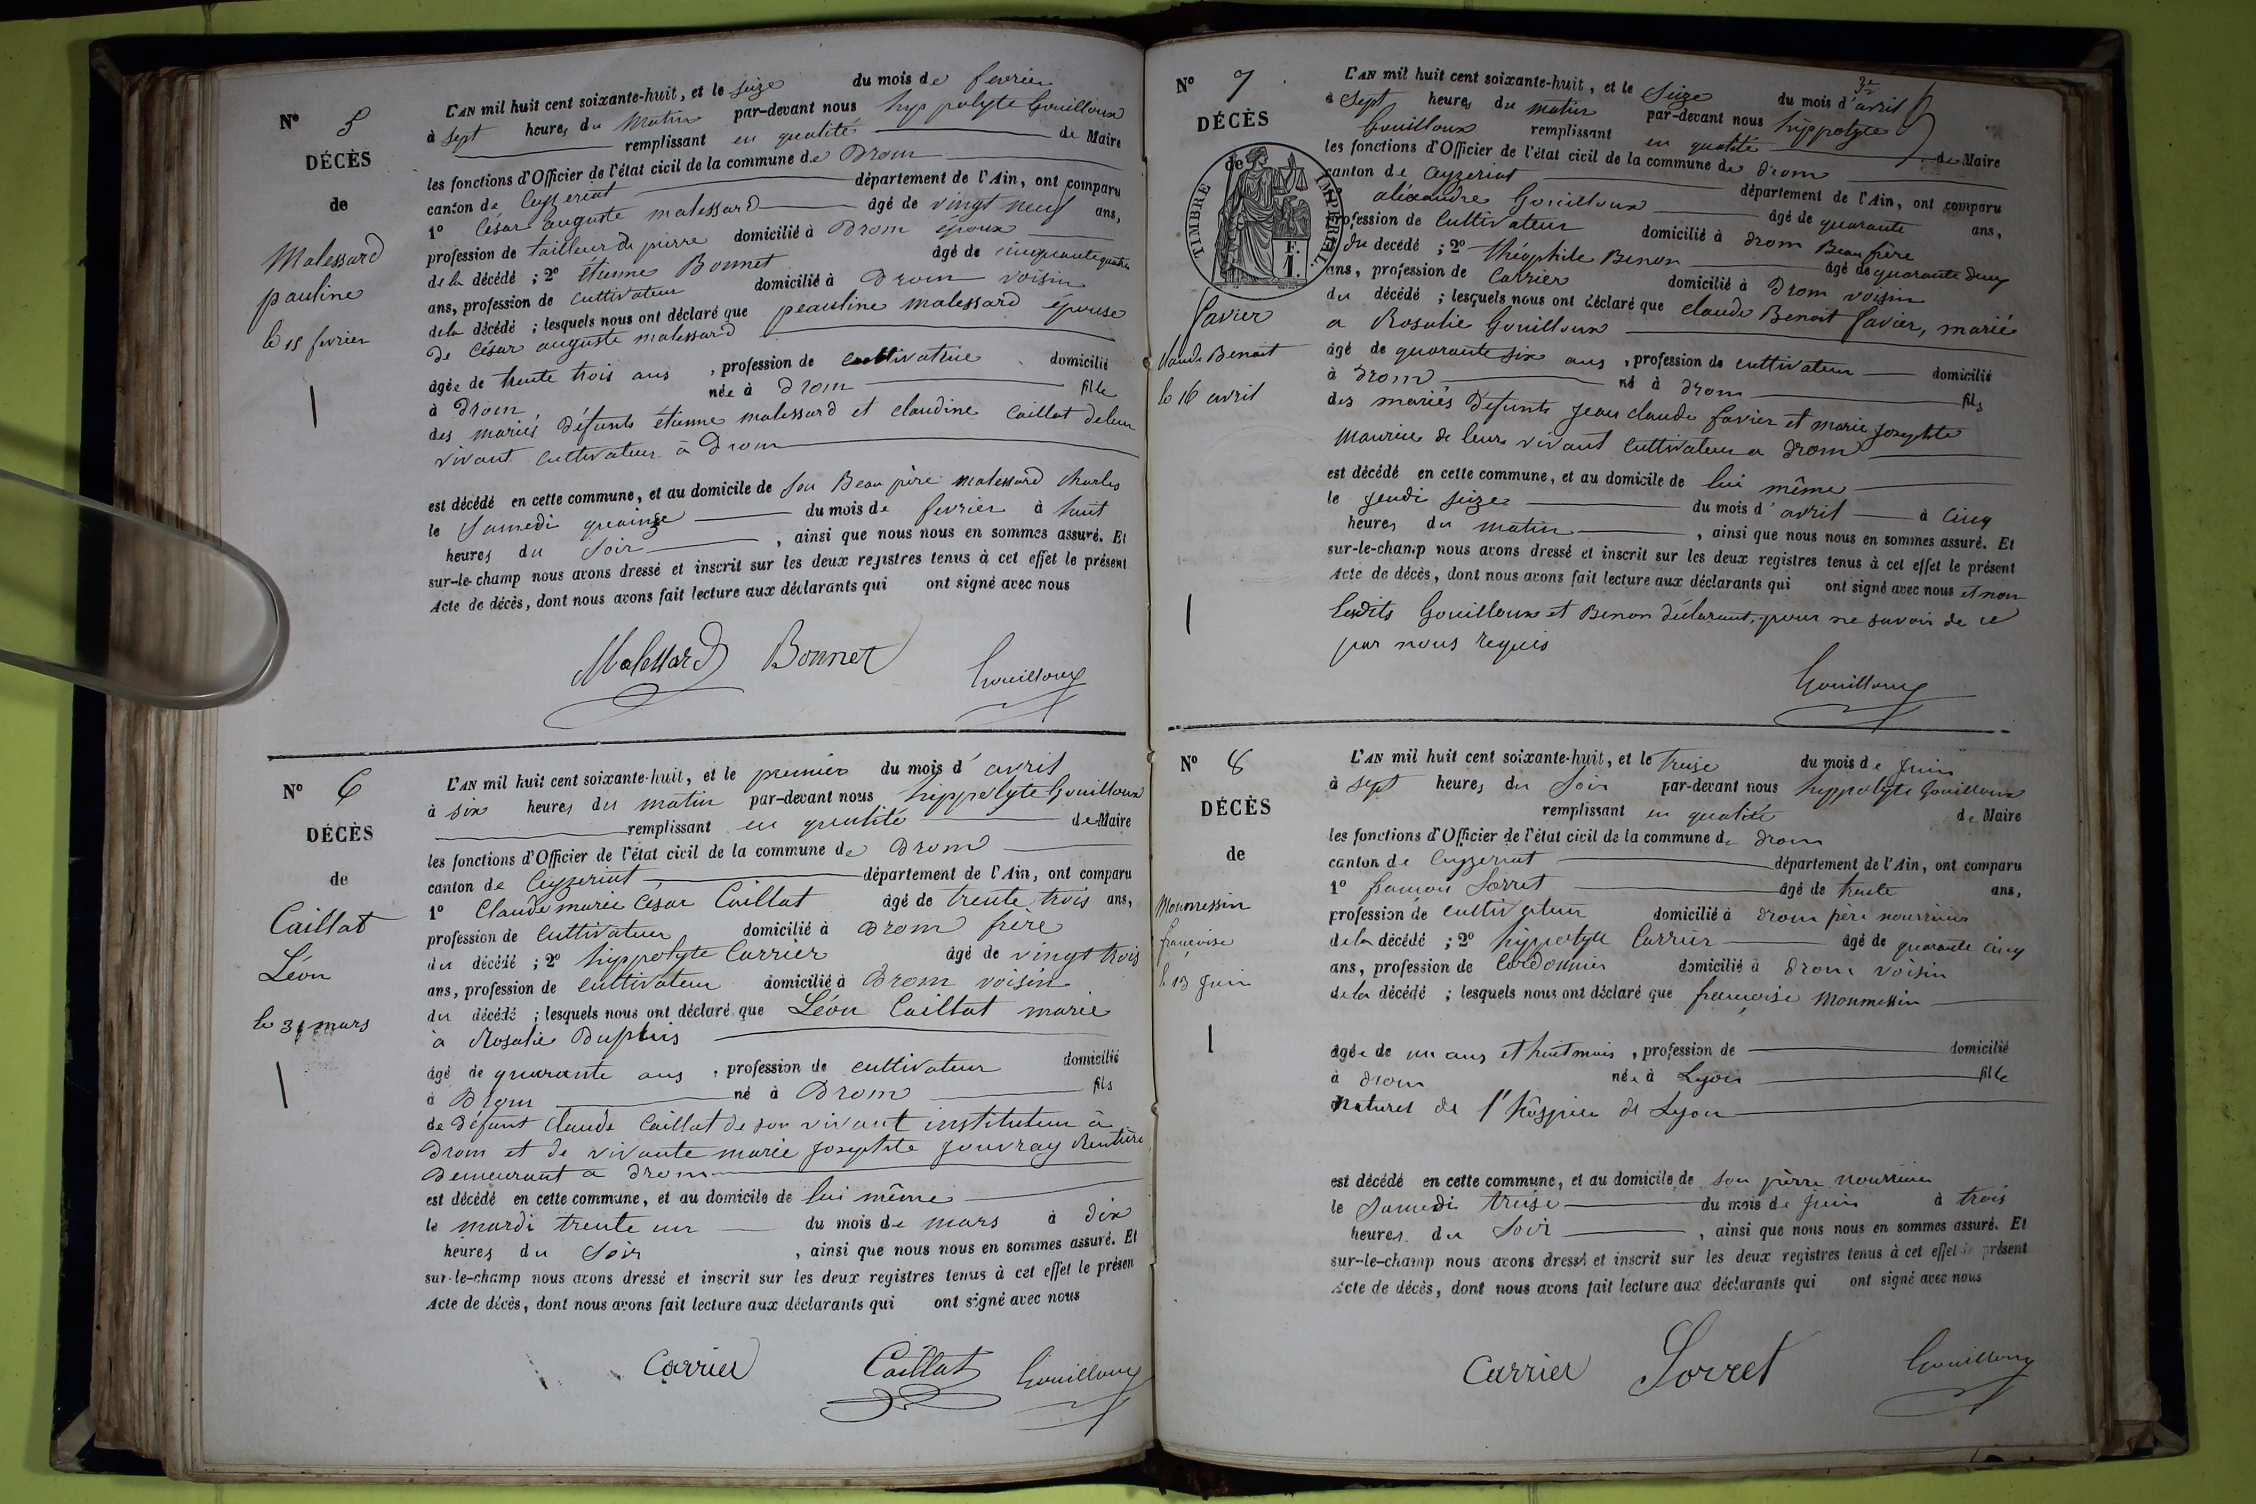 N° 5
DÉCÈS
de
Malessard
pauline
le 15 fevrier
L'AN mil huit cent soixante-huit, et le seize du mois de fevrier
à sept heures du Matin par-devant nous hyppolyte Gouilloux
remplissant en qualité de Maire
les fonctions d'Officier de l'état civil de la commune de Drom
canton de Ceyzeriat département de l'Ain, ont comparu
1° César auguste malessard âgé de vingt neuf ans,
profession de tailleur de pierre domicilié à Drom époux
de la décédé ; 2° étienne Bonnet âgé de cinquante quatre
ans, profession de cultivateur domicilié à Drom voisin
de la décédé ; lesquels nous ont déclaré que peauline malessard épouse
de César auguste malessard
âgée de trente trois ans , profession de cultivatrice domicilié
à Drom née à Drom fille
des mariés défunts étienne malessard et claudine Caillat de leur
vivant cultivateur à Drom
est décédé en cette commune, et au domicile de son Beau père malessard Charles
le Samedi quainze du mois de fevrier à huit
heures du Soir , ainsi que nous nous en sommes assuré. Et
sur-le-champ nous avons dressé et inscrit sur les deux registres tenus à cet effet le présent
Acte de décès, dont nous avons fait lecture aux déclarants qui ont signé avec nous
Malessard Bonnet Gouilloux
N° 6
DÉCÈS
de
Caillat
Léon
le 31 mars
L'AN mil huit cent soixante-huit, et le premier du mois d' avril
à six heures du matin par-devant nous hippolyte Gouilloux
remplissant en qualité de Maire
les fonctions d'Officier de l'état civil de la commune de Drom
canton de Ceyzeriat département de l'Ain, ont comparu
1° Claude marie César Caillat âgé de trente trois ans,
profession de cultivateur domicilié à Drom frère
du décédé ; 2° hippolyte Carrier âgé de vingt trois
ans, profession de cultivateur domicilié à Drom voisin
du décédé ; lesquels nous ont déclaré que Léon Caillat marié
à Rosalie Dupuis
âgé de quarante ans , profession de cultivateur domicilié
à Drom né à Drom fils
de défunt Claude Caillat de son vivant instituteur à
Drom et de vivante marie josephte jouvray Rentière
Demeurant a Drom
est décédé en cette commune, et au domicile de lui même
le mardi trente un du mois de mars à dix
heures du Soir , ainsi que nous nous en sommes assuré. Et
sur-le-champ nous avons dressé et inscrit sur les deux registres tenus à cet effet le présen
Acte de décès, dont nous avons fait lecture aux déclarants qui ont signé avec nous
Carrier Caillat Gouilloux
N° 7
DÉCÈS
de
TIMBRE IMPERIAL.
F.
1.
favier
Claude Benoit
le 16 avril
L'AN mil huit cent soixante-huit, et le Seize du mois d'avril
à Sept heures du matin par-devant nous hippolyte
Gouilloux remplissant en qualité de Maire
les fonctions d'Officier de l'état civil de la commune de drom
canton de Ceyzeriat département de l'Ain, ont comparu
aléxandre Gouilloux âgé de quarante ans,
profession de Cultivateur domicilié à drom Beau frère
du decédé ; 2° théophile Benon âgé de quarante deux
ans, profession de Carrier domicilié à Drom voisin
du décédé ; lesquels nous ont déclaré que claude Benoit favier, marié
a Rosalie Gouilloux
âgé de quarante six ans , profession de cultivateur domicilié
à Drom né à drom fils
des mariés défunts jean claude favier et marie josephte
Maurice de leur vivant Cultivateur a Drom
est décédé en cette commune, et au domicile de lui même
le jeudi seize du mois d'avril à Cinq
heures du matin , ainsi que nous nous en sommes assuré. Et
sur-le-champ nous avons dressé et inscrit sur les deux registres tenus à cet effet le présent
Acte de décès, dont nous avons fait lecture aux déclarants qui ont signé avec nous et non
lesdits Gouilloux et Benon déclarant, pour ne savoir de ce
par nous requis
Gouilloux
N° 8
DÉCÈS
de
Moumessin
françoise
le 13 juin
L'AN mil huit cent soixante-huit, et le treise du mois de juin
à sept heures du Soir par-devant nous hyppolyte Gouilloux
remplissant en qualité de Maire
les fonctions d'Officier de l'état civil de la commune de drom
canton de Ceyzeriat département de l'Ain, ont comparu
1° françois Sorret âgé de trente ans,
profession de cultivateur domicilié à drom père nourricier
de la décédé ; 2° hippolyte Carrier âgé de quarante cinq
ans, profession de Cordonnier domicilié à drom voisin
de la décédé ; lesquels nous ont déclaré que françoise Moumessin
âgée de un ans et huit mois , profession de domicilié
à drom née à Lyon fille
Naturel de l'hôspice de Lyon
est décédé en cette commune, et au domicile de son pèrre nourricier
le Samedi treise du mois de juin à trois
heures du Soir , ainsi que nous nous en sommes assuré. Et
sur-le-champ nous avons dressé et inscrit sur les deux registres tenus à cet effet le présent
Acte de décès, dont nous avons fait lecture aux déclarants qui ont signé avec nous
Carrier Sorret Gouilloux